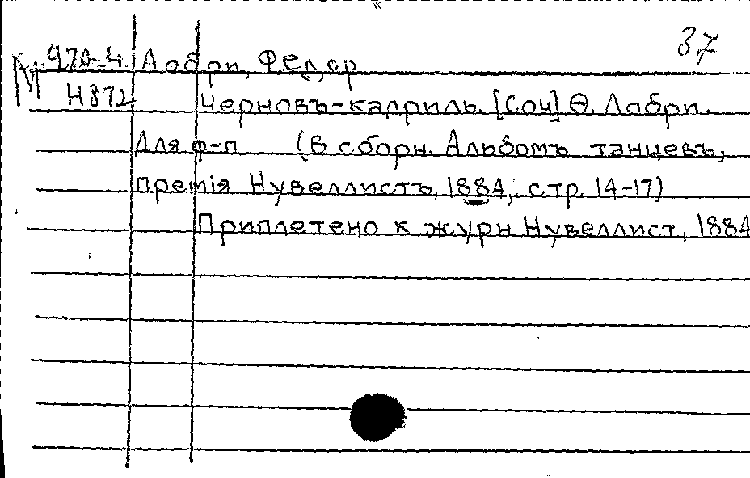 37
М 970-4 Лабри, Федер
4872 Черновъ-кадриль. [Соч] Ѳ. Лабри.
Для ф-п (В сборн. Альбомъ танцевъ,
премія Нувеллистъ, 1884, стр. 14-17)
Приплетено к журн. Нувеллист, 1884